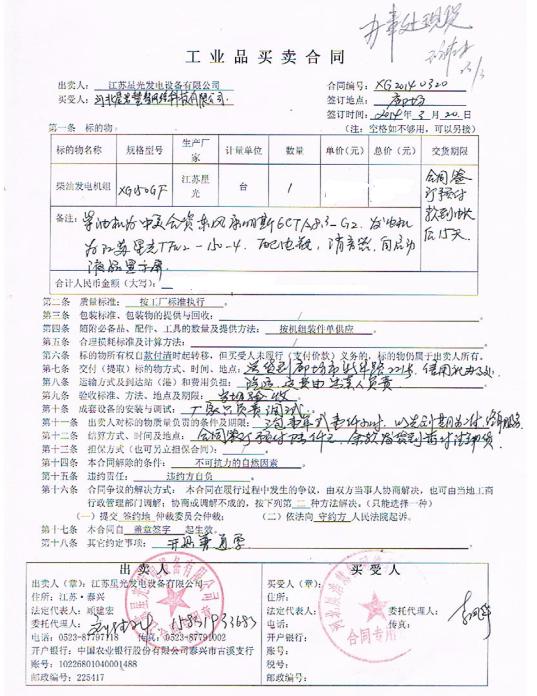 工业品买卖合同
出卖人：江苏星光发电设备有限公司
合同编号：XG20140320
买受人：
签订地点：廊坊
签订时间：2014年3月20日
第一条 标的物。
（注：空格如不够用，可以另接）
标的物名称 规格型号 生产厂家 计量单位 数量 单价(元) 总价(元) 交货期限
柴油发电机组 XG150GF 江苏星光 台 1
合同签订预付款到帐后15天
备注：柴油机为中美合资东风康明斯6CTA8.3-G2. 发电机
为江苏星光TFW2-150-4. 配电瓶，消音器，自启动
液晶显示屏
合计人民币金额（大写）：
第二条 质量标准：按工厂标准执行。
第三条 包装标准、包装物的提供与回收： / 。
第四条 随附必备品、配件、工具的数量及提供方法：按机组装件单供应
第五条 合理损耗标准及计算方法： / 。
第六条 标的物所有权自款付清时起转移，但买受人未履行（支付价款）义务的，标的物仍属于出卖人所有。
第七条 交付（提取）标的物方式、时间、地点：送货到廊坊市
第八条 运输方式及到达站（港）和费用负担：
第九条 验收标准、方法、地点及期限：当地验收
第十条 成套设备的安装与调试：厂家只负责调试
第十一条 出卖人对标的物质量负责的条件及期限：
第十二条 结算方式、时间及地点：合同签订预付
第十三条 担保方式（也可另立担保合同）： /
第十四条 本合同解除的条件：不可抗力的自然因素
第十五条 违约责任：违约方自负
第十六条 合同争议的解决方式：本合同在履行过程中发生的争议，由双方当事人协商解决，也可由当地工商
行政管理部门调解；协商或调解不成的，按下列第 二 种方法解决。（只能选择一种）
（一）提交 签约地 仲裁委员会仲裁； （二）依法向 守约方 人民法院起诉。
第十七条 本合同自 盖章签字 起生效。
第十八条 其它约定事项：开具普通票
出卖人
买受人
出卖人（章）：江苏星光发电设备有限公司
买受人（章）：
住所：江苏·泰兴
住所：
法定代表人：顾建宏
法定代表人：
委托代理人：
委托代理人：
电话：0523-87797118 传真：0523-87791002
传真：
开户银行：中国农业银行股份有限公司泰兴市古溪支行
开户银行：
账号：10226801040001488
账号：
税号：
邮政编号：225417
邮政编号：
合同专用